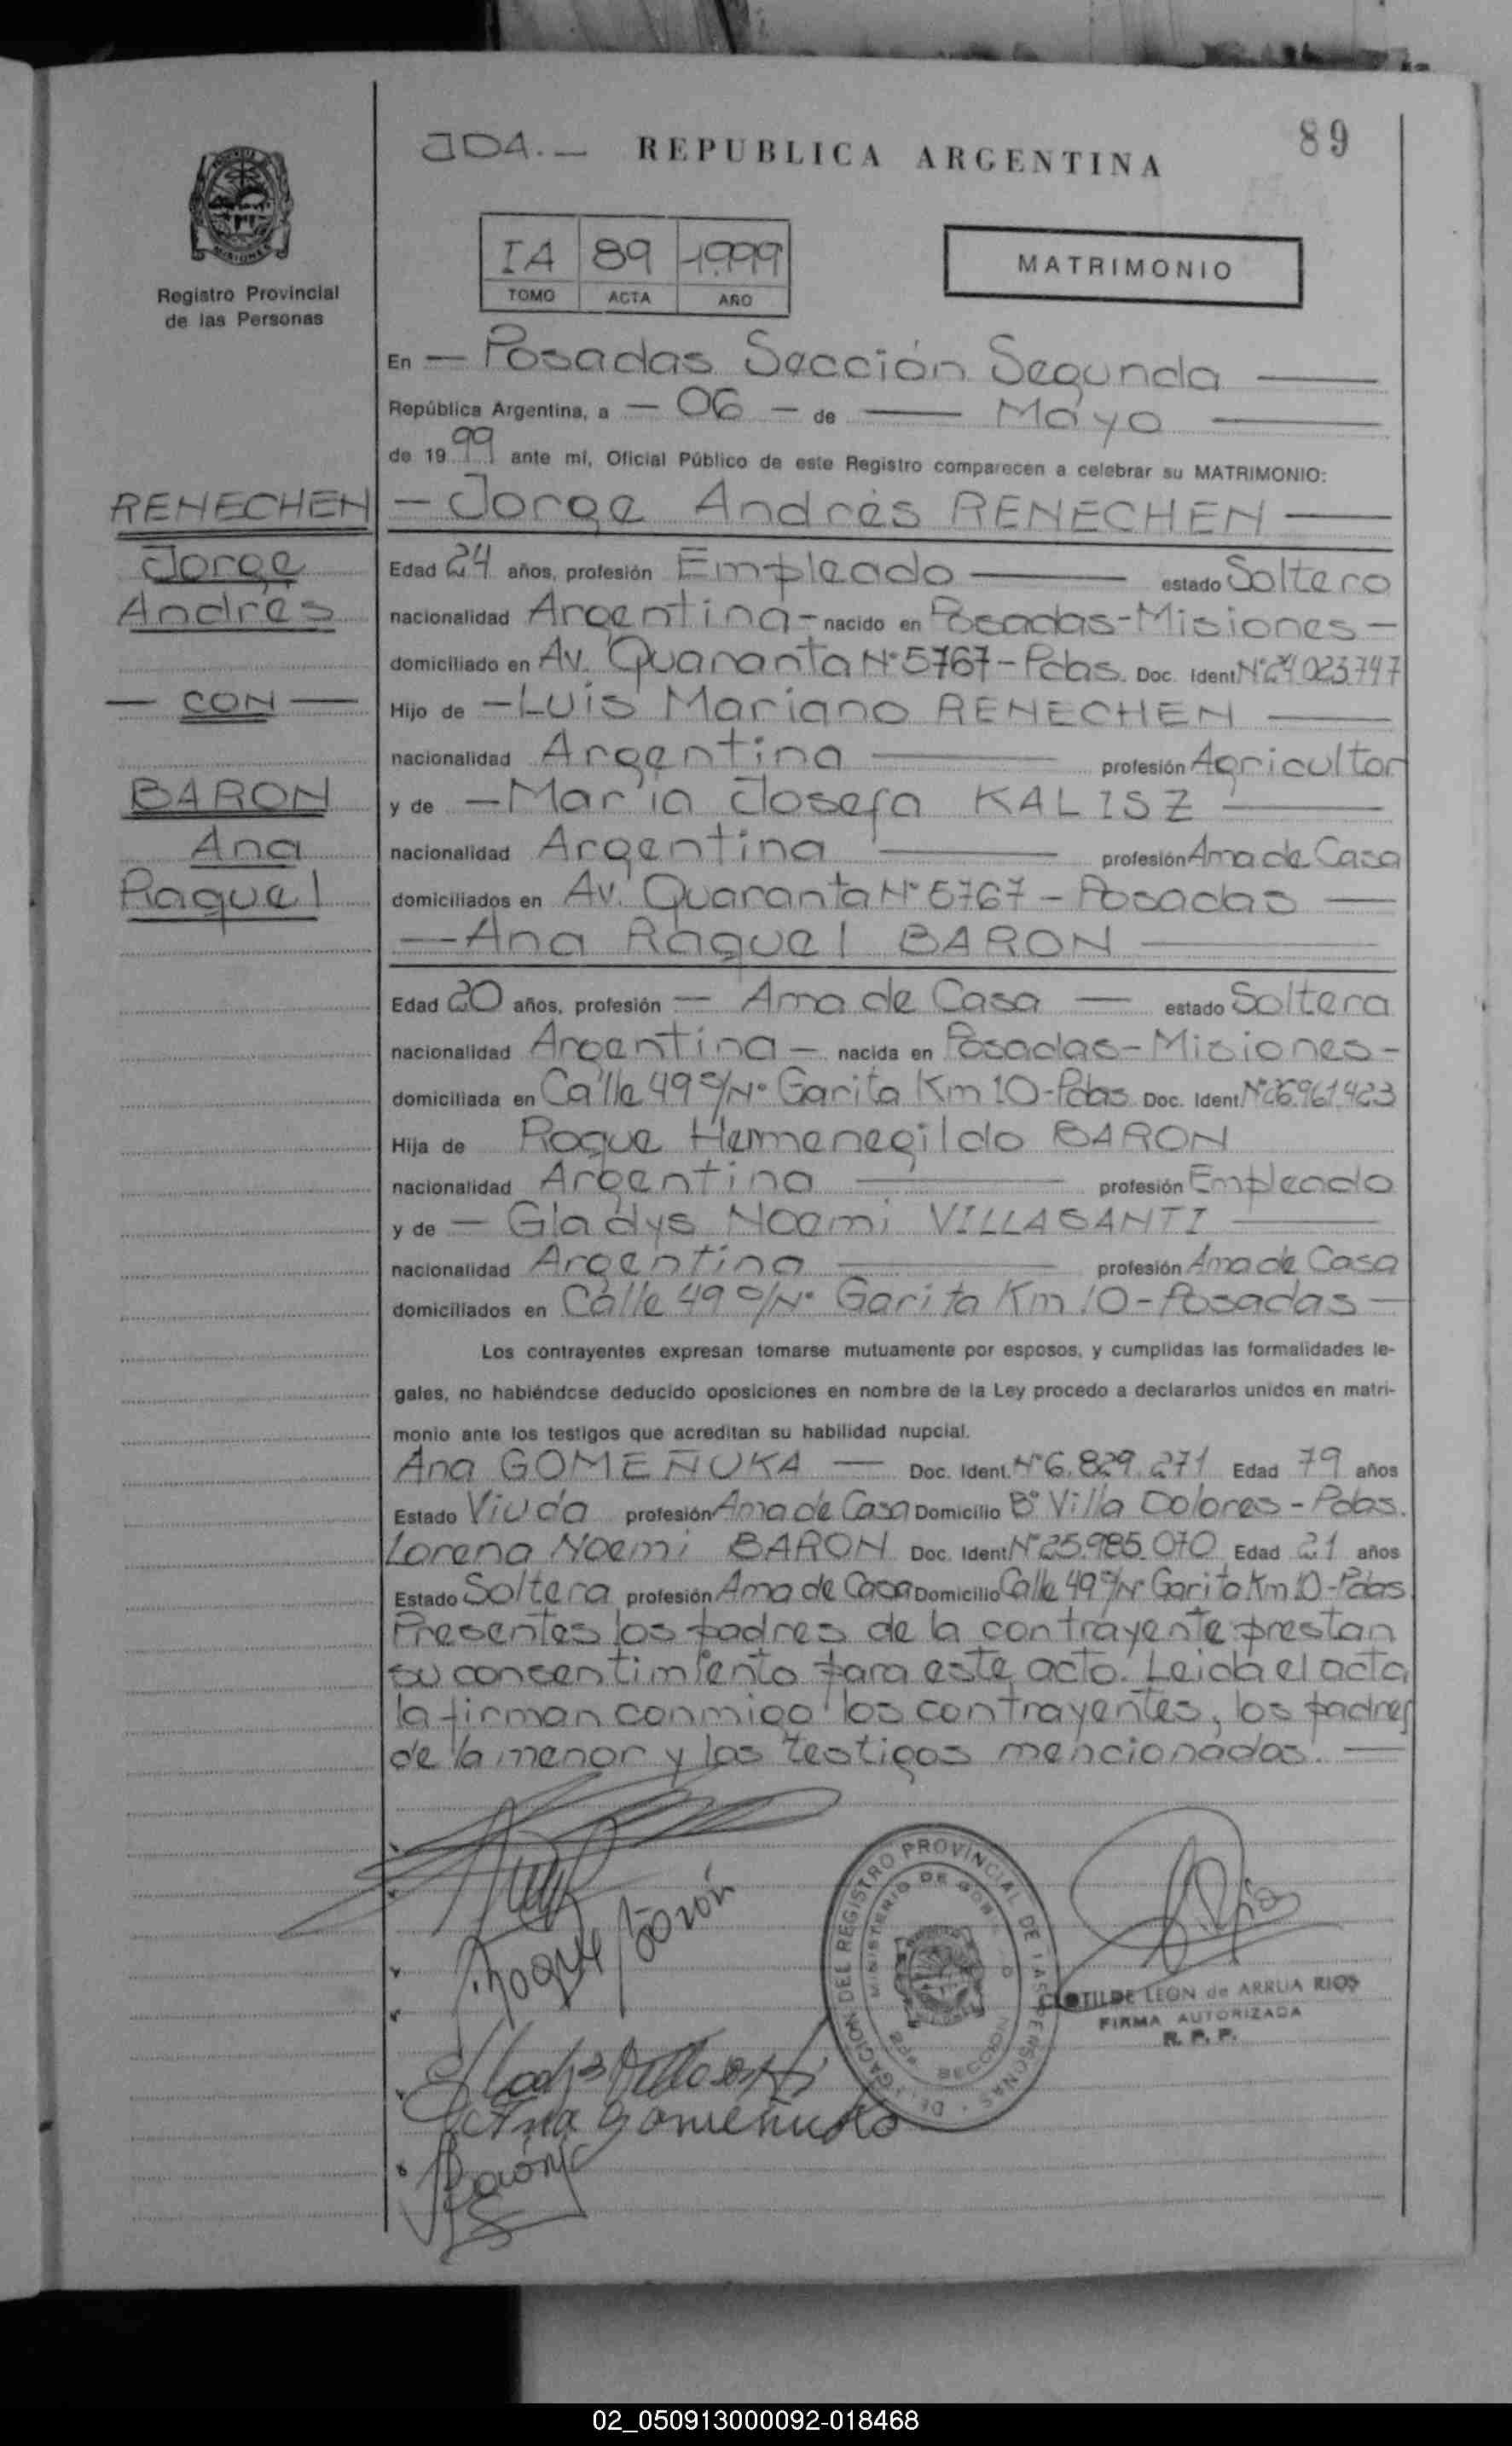 JDA.— REPUBLICA ARGENTINA
89
Registro Provincial
de las Personas
IA 89 1999
TOMO ACTA AÑO
MATRIMONIO
En — Posadas Sección Segunda —
República Argentina, a — 06 — de — Mayo —
de 1999 ante mí, Oficial Público de este Registro comparecen a celebrar su MATRIMONIO:
RENECHEN
Jorge
Andrés
— CON —
BARON
Ana
Raquel
— Jorge Andrés RENECHEN —
Edad 24 años, profesión Empleado — estado Soltero
nacionalidad Argentina — nacido en Posadas-Misiones —
domiciliado en Av. Quaranta Nº 5767 - Pdas. Doc. Ident. Nº 24.023.747
Hijo de — Luis Mariano RENECHEN —
nacionalidad Argentina — profesión Agricultor
y de — María Josefa KALISZ —
nacionalidad Argentina — profesión Ama de Casa
domiciliados en Av. Quaranta Nº 5767 - Posadas —
— Ana Raquel BARON —
Edad 20 años, profesión — Ama de Casa — estado Soltera
nacionalidad Argentina — nacida en Posadas-Misiones -
domiciliada en Calle 49 s/Nº Garita Km 10-Pdas. Doc. Ident. Nº 26.961.423
Hija de Roque Hermenegildo BARON
nacionalidad Argentina — profesión Empleado
y de — Gladys Noemi VILLASANTI —
nacionalidad Argentina — profesión Ama de Casa
domiciliados en Calle 49 s/Nº Garita Km 10 - Posadas —
Los contrayentes expresan tomarse mutuamente por esposos, y cumplidas las formalidades le-
gales, no habiéndose deducido oposiciones en nombre de la Ley procedo a declararlos unidos en matri-
monio ante los testigos que acreditan su habilidad nupcial.
Ana GOMEÑUKA — Doc. Ident. Nº 6.829.271 Edad 79 años
Estado Viuda profesión Ama de Casa Domicilio Bº Villa Dolores - Pdas.
Lorena Noemi BARON Doc. Ident. Nº 25.985.070 Edad 21 años
Estado Soltera profesión Ama de Casa Domicilio Calle 49 s/Nº Garita Km 10-Pdas.
Presentes los padres de la contrayente prestan
su consentimiento para este acto. Leida el acta
la firman conmigo los contrayentes, los padres
de la menor y los testigos mencionados. —
Roque Barón
Gladys Villasanti
Ana Gomeñuka
DELEGACION DEL REGISTRO PROVINCIAL DE LAS PERSONAS
MINISTERIO DE GOB.
CLOTILDE LEON de ARRUA RIOS
FIRMA AUTORIZADA
R. P. P.
02_050913000092-018468